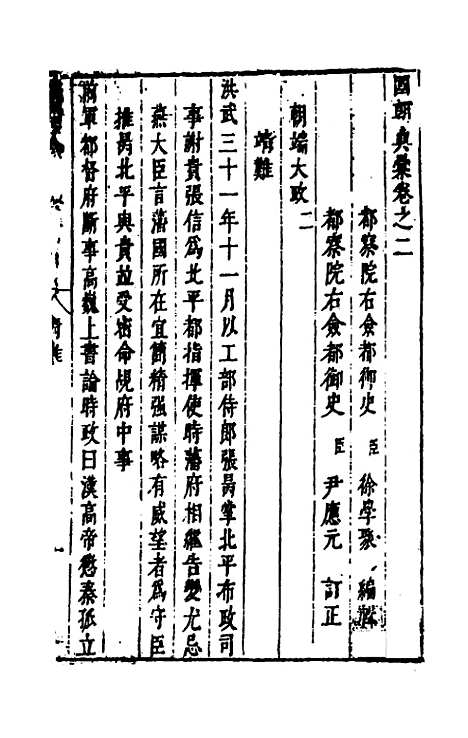 國朝典彙卷之二
都察院右僉都御史 臣 徐學聚 編輯
都察院右僉都御史 臣 尹應元 訂正
朝端大政二
靖難
洪武三十一年十一月以工部侍郎張昺掌北平布政司
事謝貴張信爲北平都指揮使時藩府相繼告變尤忌
燕大臣言藩國所在宜簡精强謀略有威望者爲守臣
推昺北平與貴並受密命覘府中事
前軍都督府斷事高巍上書論時政曰漢高帝懲秦孤立